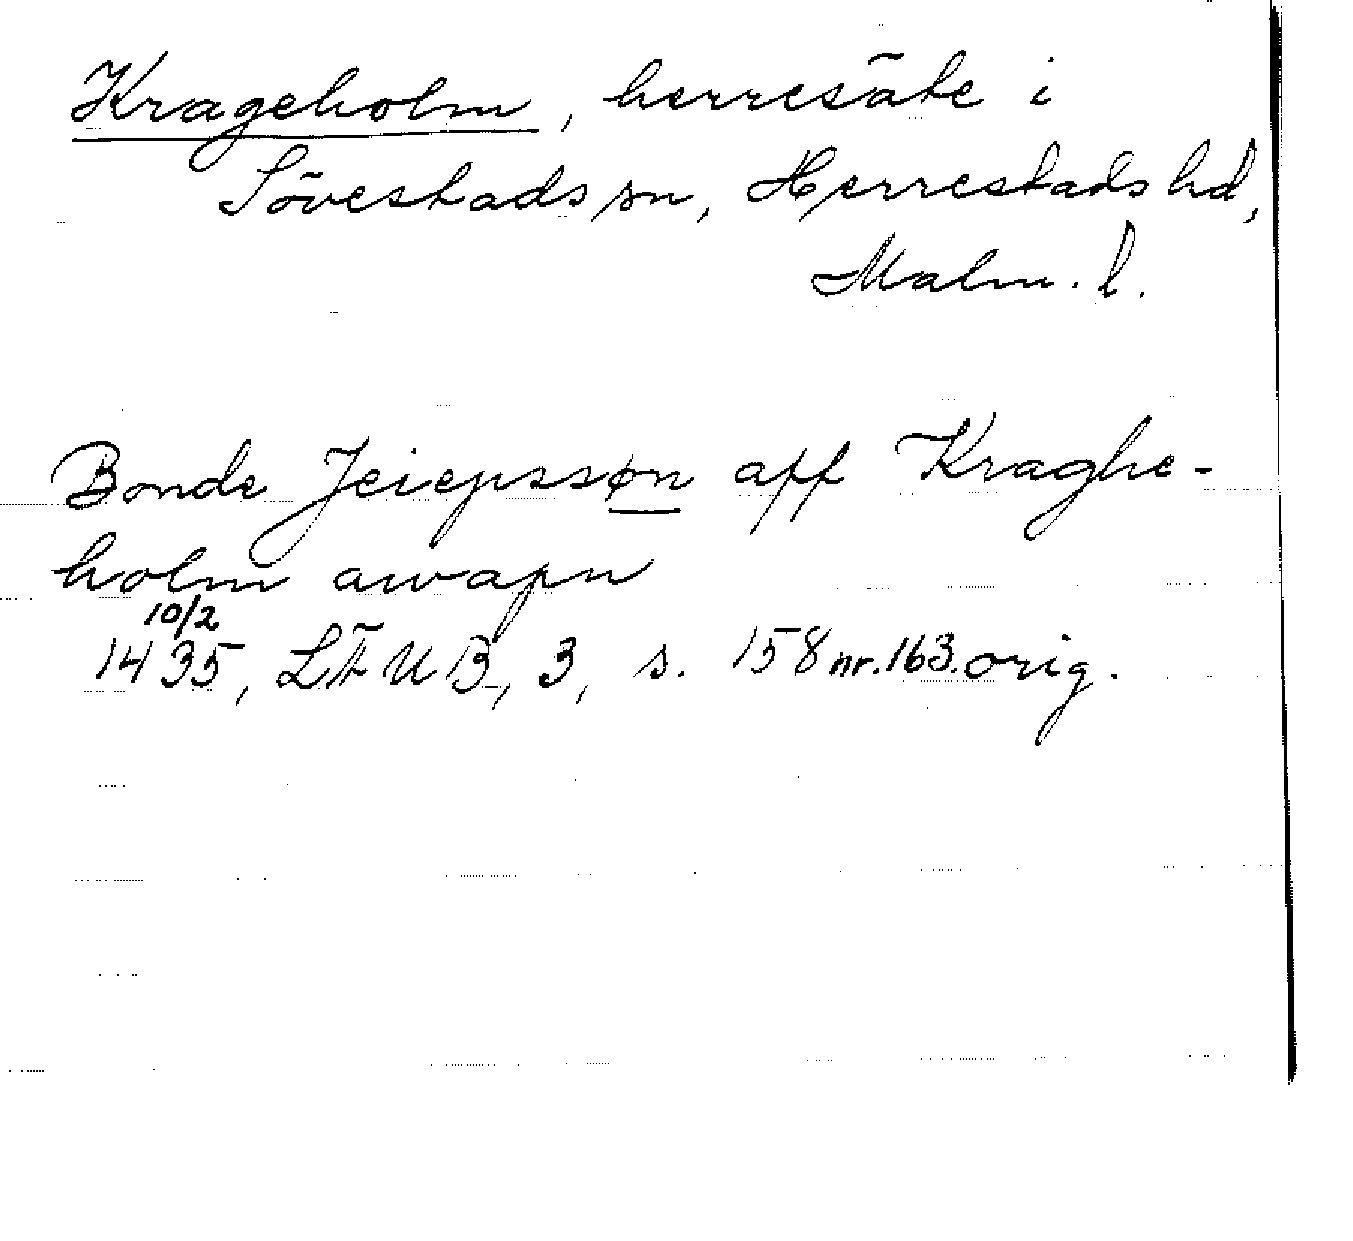 Krageholm, herresäte i
Sövestads sn, Herrestads hd,
Malm. l.
Bonde Jeiepssøn aff Kraghe-
holm awapn
10/2
1435, LÄUB, 3, s. 158 nr. 163. orig.